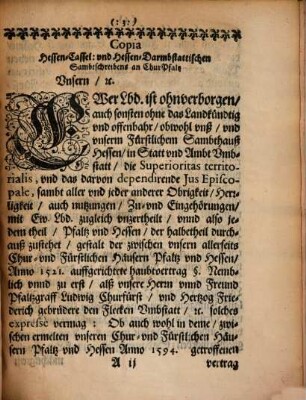 (: 3 :)
Copia
Hessen-Cassel: und Hessen-Darmbstattischen
Sambtschreibens an ChurPfaltz
Unsern / ꝛc.
EWer Lbd. ist ohnverborgen /
auch sonsten ohne das Landkündig
und offenbahr / obwohl unß / und
unserm Fürstlichem Sambthauß
Hessen / in Statt und Ambt Umb-
statt / die Superioritas territo-
rialis, und das darvon dependirende Jus Episco-
pale, sambt aller und jeder anderer Obrigkeit / Herr-
ligkeit / auch nutzungen / Zu- und Eingehörungen /
mit Ew. Lbd. zugleich unzertheilt / unnd also je-
dem theil / Pfaltz und Hessen / der halbetheil durch-
auß zustehet / gestalt der zwischen unsern allerseits
Chur- und Fürstlichen Häusern Pfaltz und Hessen /
Anno 1521. auffgerichtete haubtvertrag §. Nemb-
lich unnd zu erst / alß unsere Herrn unnd Freund
Pfaltzgraff Ludwig Churfürst / und Hertzog Frie-
derich gebrüdere den Flecken Umbstatt / ꝛc. solches
expresse vermag : Ob auch wohl in deme / zwi-
schen ermelten unseren Chur- und Fürstlichen Häu-
sern Pfaltz und Hessen Anno 1594. getroffenen
A ij vertrag